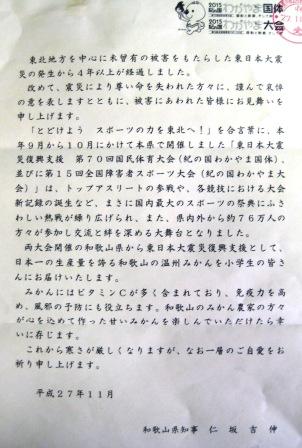 2015 紀の国 わかやま国体
2015 紀の国 わかやま大会
東北地方を中心に未曽有の被害をもたらした東日本大震
災の発生から4年以上が経過しました。
改めて、震災により尊い命を失われた方々に、謹んで哀悼
の意を表しますとともに、被害にあわれた皆様にお見舞いを
申し上げます。
「とどけよう スポーツの力を東北へ!」を合言葉に、本
年9月から10月にかけて本県で開催しました「東日本大震
災復興支援 第70回国民体育大会(紀の国わかやま国体)、
並びに第15回全国障害者スポーツ大会(紀の国わかやま大
会)」は、トップアスリートの参戦や、各競技における大会
新記録の誕生など、まさに国内最大のスポーツの祭典にふさ
わしい熱戦が繰り広げられ、また、県内外から約76万人の
方々が参加し交流と絆を深める大舞台となりました。
両大会開催の和歌山県から東日本大震災復興支援として、
日本一の生産量を誇る和歌山の温州みかんを小学生の皆さ
んにお届けいたします。
みかんにはビタミンCが多く含まれており、免疫力を高
め、風邪の予防にも役立ちます。和歌山のみかん農家の方々
が心を込めて作った甘いみかんを楽しんでいただけたら幸
いに存じます。
これから寒さが厳しくなりますが、なお一層のご自愛をお
祈り申し上げます。
平成27年11月
和歌山県知事 仁坂吉伸